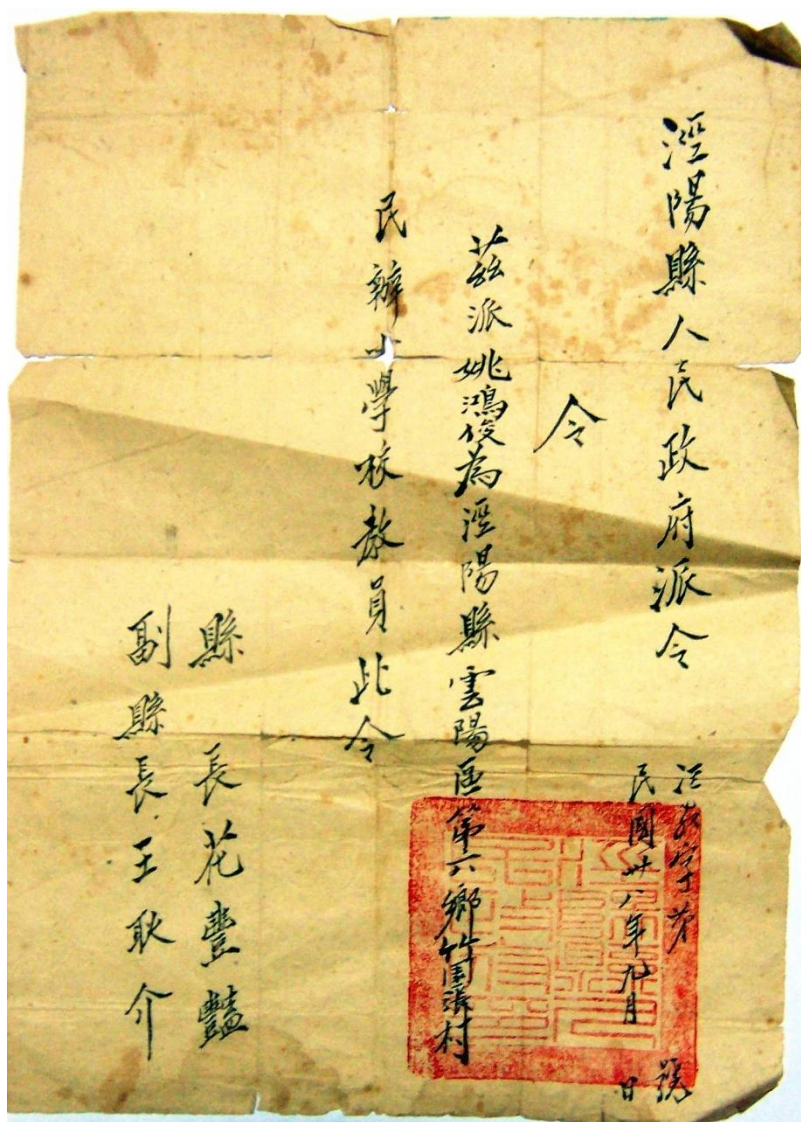 涇陽縣人民政府派令
涇教字第 號
民國卅八年九月 日
令
茲派姚鴻俊為涇陽縣雲陽區第六鄉竹園張村
民辦小學校教員此令
縣長花豐豔
副縣長王耿介